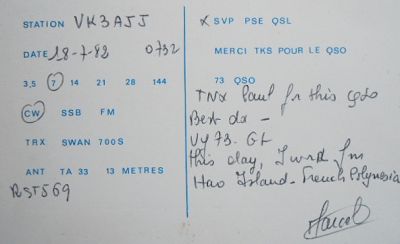 STATION VK3AJJ
DATE 18-7-82 0732
3,5 7 14 21 28 144
CW SSB FM
TRX SWAN 700S
ANT TA 33 13 METRES
RST569
X SVP PSE QSL
MERCI TKS POUR LE QSO
73 QSO
TNX Paul fr this QSO
Best dx -
Vy 73. GL
this day, I wrk fm
Hao Island - French Polynesia
Marcel